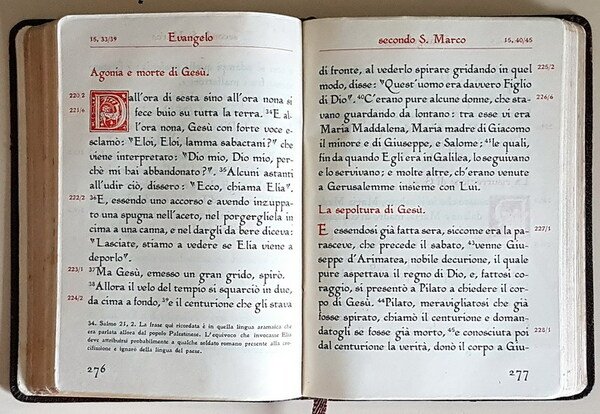 15, 33/39
Evangelo
Agonia e morte di Gesù.
220/2
Dall'ora di sesta sino all'ora nona si
221/6
fece buio su tutta la terra. ³⁴E al-
l'ora nona, Gesù con forte voce e-
sclamò: "Eloi, Eloi, lamma sabactani?" che
viene interpretato: "Dio mio, Dio mio, per-
chè mi hai abbandonato?". ³⁵Alcuni astanti
all'udir ciò, dissero: "Ecco, chiama Elia".
222/2
³⁶E, essendo uno accorso e avendo inzuppa-
to una spugna nell'aceto, nel porgergliela in
cima a una canna, e nel dargli da bere diceva:
"Lasciate, stiamo a vedere se Elia viene a
deporlo".
223/1
³⁷Ma Gesù, emesso un gran grido, spirò.
³⁸Allora il velo del tempio si squarciò in due,
224/2
da cima a fondo, ³⁹e il centurione che gli stava
34. Salmo 21, 2. La frase qui ricordata è in quella lingua aramaica che
era parlata allora dal popolo Palestinese. L'equivoco che invocasse Elia
deve attribuirsi probabilmente a qualche soldato romano presente alla cro-
cifissione e ignaro della lingua del paese.
276
secondo S. Marco
15, 40/45
di fronte, al vederlo spirare gridando in quel
225/2
modo, disse: "Quest'uomo era davvero Figlio
di Dio". ⁴⁰C'erano pure alcune donne, che sta-
226/6
vano guardando da lontano: tra esse vi era
Maria Maddalena, Maria madre di Giacomo
il minore e di Giuseppe, e Salome; ⁴¹le quali,
fin da quando Egli era in Galilea, lo seguivano
e lo servivano; e molte altre, ch'erano venute
a Gerusalemme insieme con Lui.
La sepoltura di Gesù.
E essendosi già fatta sera, siccome era la pa-
227/1
rasceve, che precede il sabato, ⁴³venne Giu-
seppe d'Arimatea, nobile decurione, il quale
pure aspettava il regno di Dio, e, fattosi co-
raggio, si presentò a Pilato a chiedere il cor-
po di Gesù. ⁴⁴Pilato, meravigliatosi che già
fosse spirato, chiamò il centurione e doman-
datogli se fosse già morto, ⁴⁵e conosciuta poi
228/1
dal centurione la verità, donò il corpo a Giu-
277